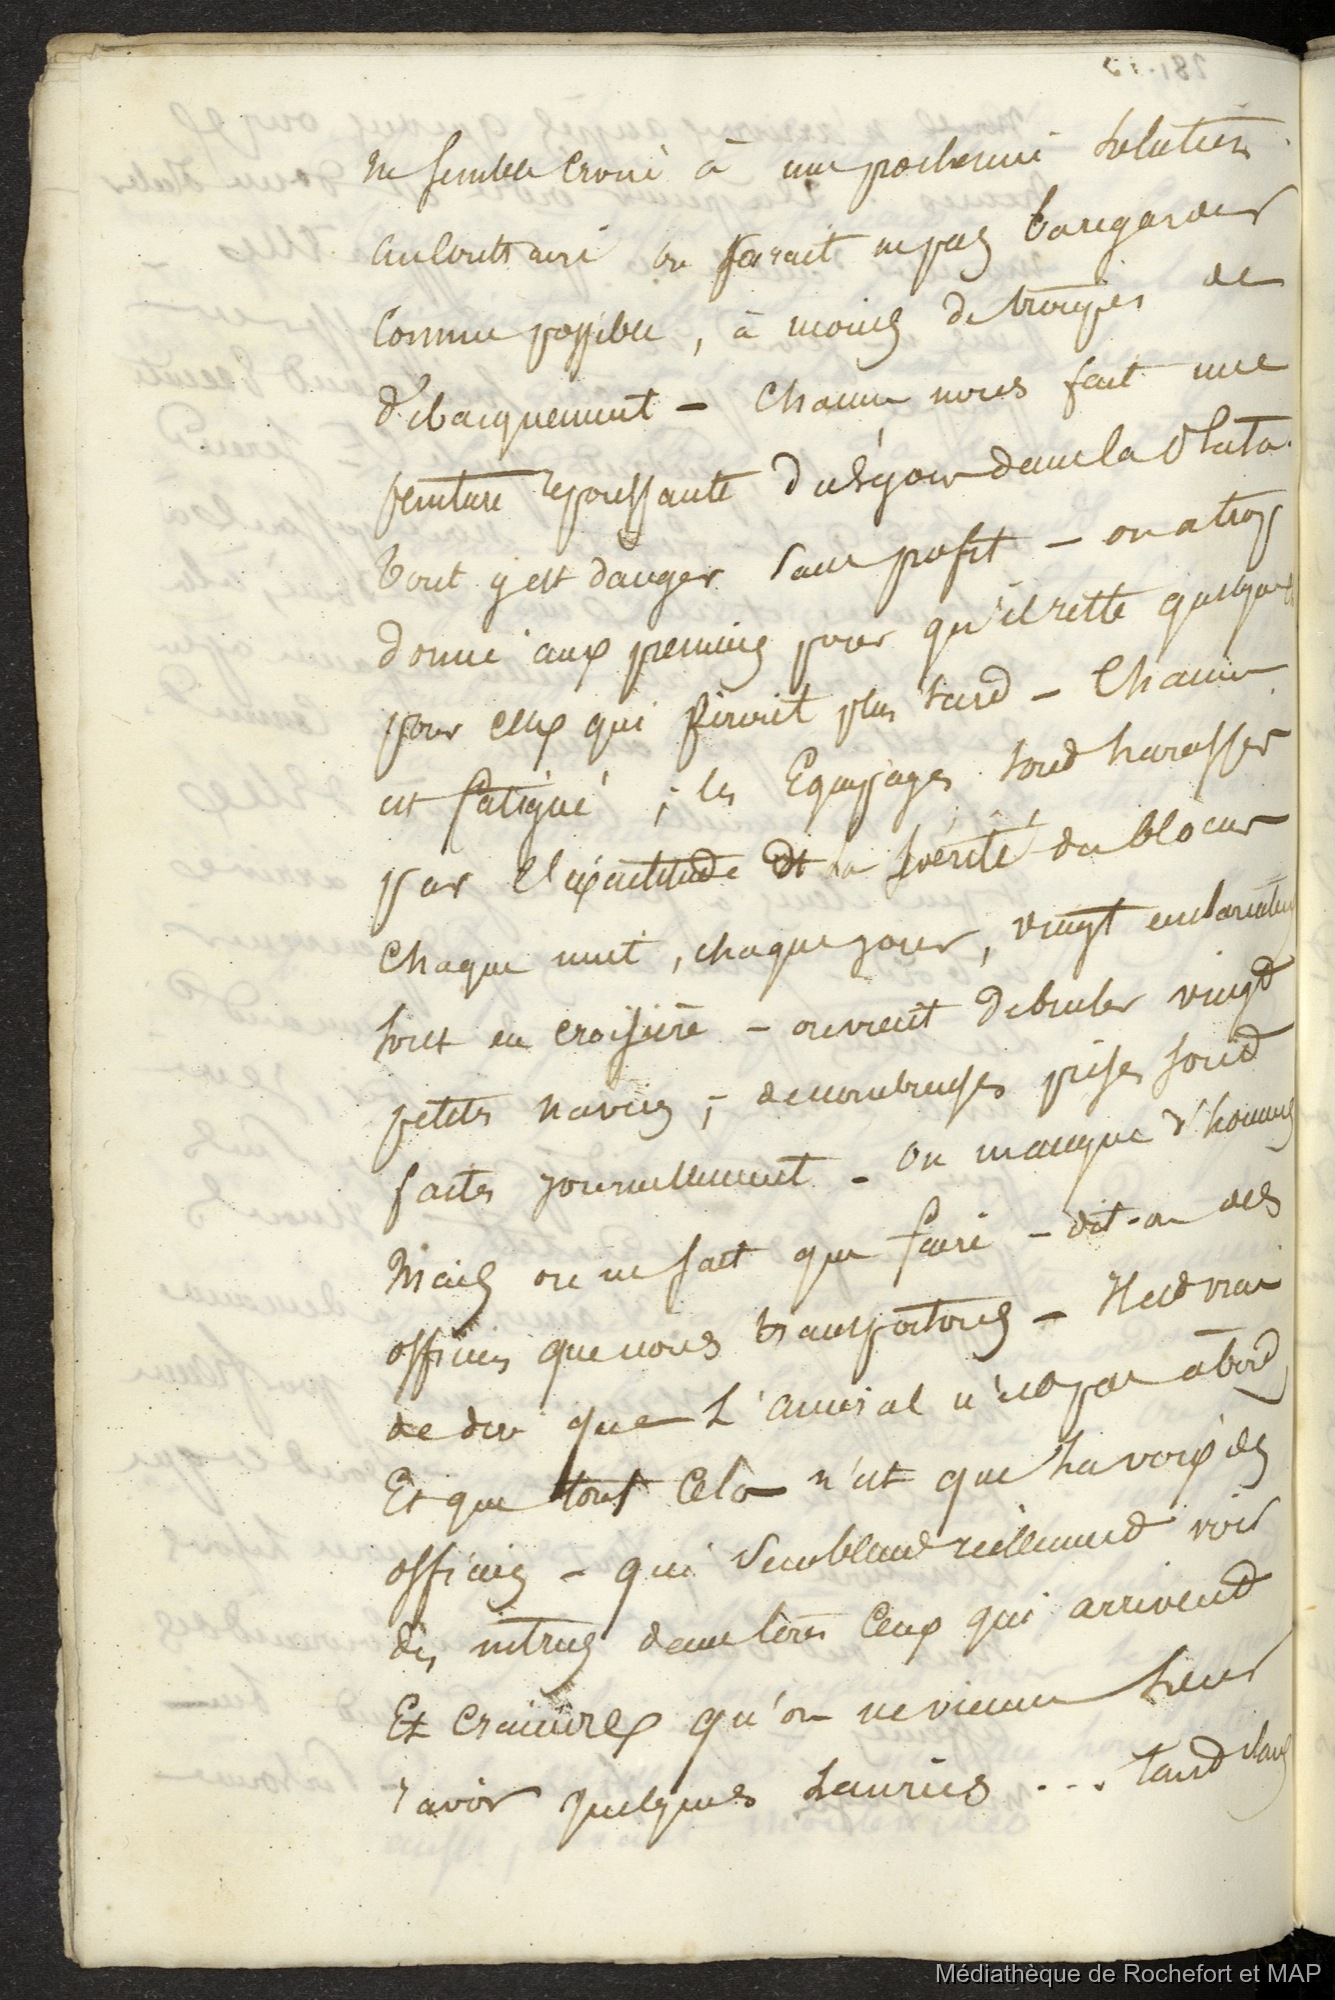 ne semble croire à une prochaine solution
au contraire on parait ne pas la regarder
comme possible, à moins de troupes de
débarquement - Chacun nous fait une
peinture repoussante du séjour dans la Plata.
tout y est danger sans profit - on a trop
donné aux premiers pour qu'il reste quelque
pour ceux qui plus tard - Chacun
est fatigué ; les Equipages sont harasser
par l'exactitude et la sévérité du blocus
chaque nuit, chaque jour, vingt embarcations
sont en croisière - on vient de bruler vingt
petits navires ; de nombreuses prises sont
faites journellement - on manque d'hommes
Mais on ne sait que faire - dit-on des
officiers que nous transportons - Il est vrai
de dire que L'amiral n'est pas abord
Et que tout Cela n'est que La voix des
officiers - qui Semblent réellement voir
des intrus dans tous Ceux qui arrivent
Et craindre qu'on ne vienne Leur
ravir quelques Lauriers ... tant dans
Médiathèque de Rochefort et MAP